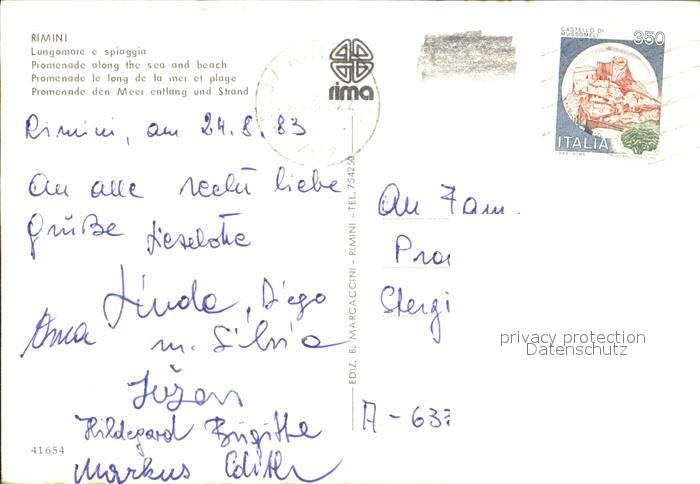 RIMINI
Lungomare e spiaggia
Promenade along the sea and beach
Promenade le long de la mer et plage
Promenade den Meer entlang und Strand
rima
CASTELLO DI
MUSSOMELI
350
ITALIA
Rimini, am 24.8.83
An alle recht liebe
Grüße Lieselotte
Linda, Diego
Oma m. Silvia
Hildegard Brigitte
Markus Edith
41654
EDIZ. B. MARCACCINI - RIMINI - TEL. 754250
An Fam.
Pra
Stergi
A - 633
privacy protection
Datenschutz